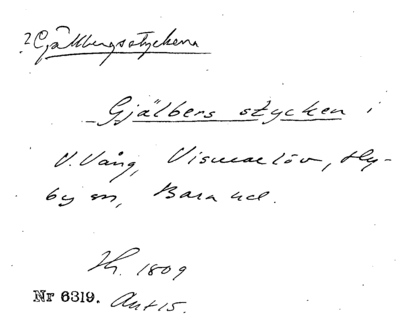 ? Gjällbergsstyckena
Gjälbers stycken i
V. Vång, Vismarlöv, Hy-
by sn, Bara hd.
1809
Nr 6319. Ant 15.